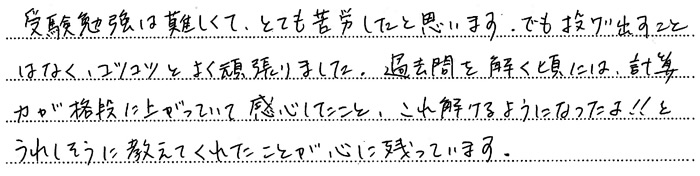 受験勉強は難しくて、とても苦労したと思います。でも投げ出すこと
はなく、コツコツとよく頑張りました。過去問を解く頃には、計算
力が格段に上がっていて感心したこと、これ解けるようになったよ!!と
うれしそうに教えてくれたことが心に残っています。